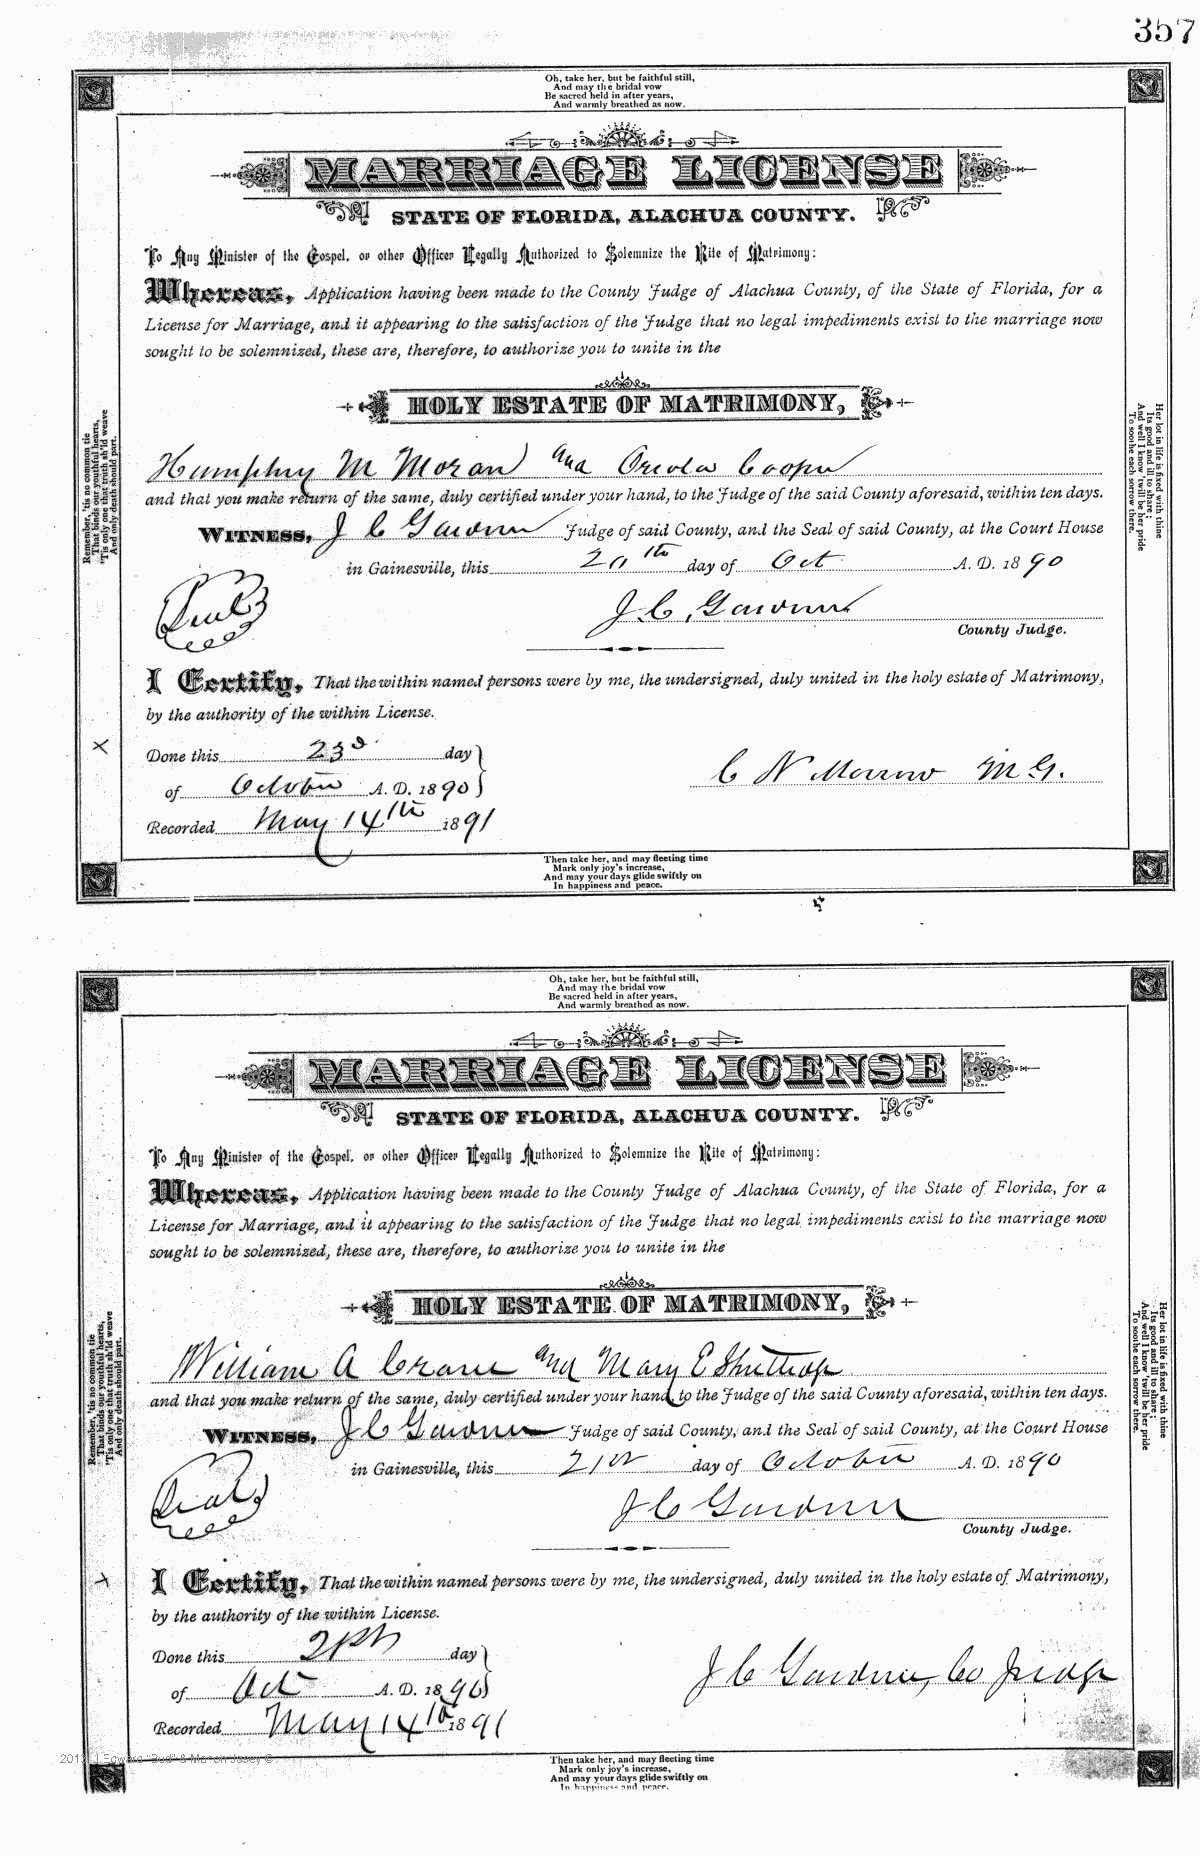 357
Oh, take her, but be faithful still,
And may the bridal vow
Be sacred held in after years,
And warmly breathed as now.
MARRIAGE LICENSE
STATE OF FLORIDA, ALACHUA COUNTY.
To Any Minister of the Gospel, or other Officer Legally Authorized to Solemnize the Rite of Matrimony:
Whereas, Application having been made to the County Judge of Alachua County, of the State of Florida, for a
License for Marriage, and it appearing to the satisfaction of the Judge that no legal impediments exist to the marriage now
sought to be solemnized, these are, therefore, to authorize you to unite in the
HOLY ESTATE OF MATRIMONY,
Humphry M Moran and Cooper
and that you make return of the same, duly certified under your hand, to the Judge of the said County aforesaid, within ten days.
WITNESS, J C Gardner Judge of said County, and the Seal of said County, at the Court House
in Gainesville, this day of Oct A. D. 1890
Seal
J. C. Gardner
County Judge.
I Certify, That the within named persons were by me, the undersigned, duly united in the holy estate of Matrimony,
by the authority of the within License.
Done this 23d day
of October A. D. 1890
C N Morrow M G.
Recorded May 14th 1891
Remember, 'tis no common tie
That binds our youthful hearts,
'Tis only one that truth sh'ld weave
And only death should part.
Her lot in life is fixed with thine
Its good and ill to share;
And well I know 'twill be her pride
To soothe each sorrow there.
Then take her, and may fleeting time
Mark only joy's increase,
And may your days glide swiftly on
In happiness and peace.
Oh, take her, but be faithful still,
And may the bridal vow
Be sacred held in after years,
And warmly breathed as now.
MARRIAGE LICENSE
STATE OF FLORIDA, ALACHUA COUNTY.
To Any Minister of the Gospel, or other Officer Legally Authorized to Solemnize the Rite of Matrimony:
Whereas, Application having been made to the County Judge of Alachua County, of the State of Florida, for a
License for Marriage, and it appearing to the satisfaction of the Judge that no legal impediments exist to the marriage now
sought to be solemnized, these are, therefore, to authorize you to unite in the
HOLY ESTATE OF MATRIMONY,
William A Crane and Mary E
and that you make return of the same, duly certified under your hand to the Judge of the said County aforesaid, within ten days.
WITNESS, J C Gardner Judge of said County, and the Seal of said County, at the Court House
in Gainesville, this 21st day of October A. D. 1890
Seal
J C Gardner
County Judge.
I Certify, That the within named persons were by me, the undersigned, duly united in the holy estate of Matrimony,
by the authority of the within License.
Done this 21st day
of Oct A. D. 1890
J C Gardner, Co Judge
Recorded May 14th 1891
Remember, 'tis no common tie
That binds our youthful hearts,
'Tis only one that truth sh'ld weave
And only death should part.
Her lot in life is fixed with thine
Its good and ill to share;
And well I know 'twill be her pride
To soothe each sorrow there.
Then take her, and may fleeting time
Mark only joy's increase,
And may your days glide swiftly on
In happiness and peace.